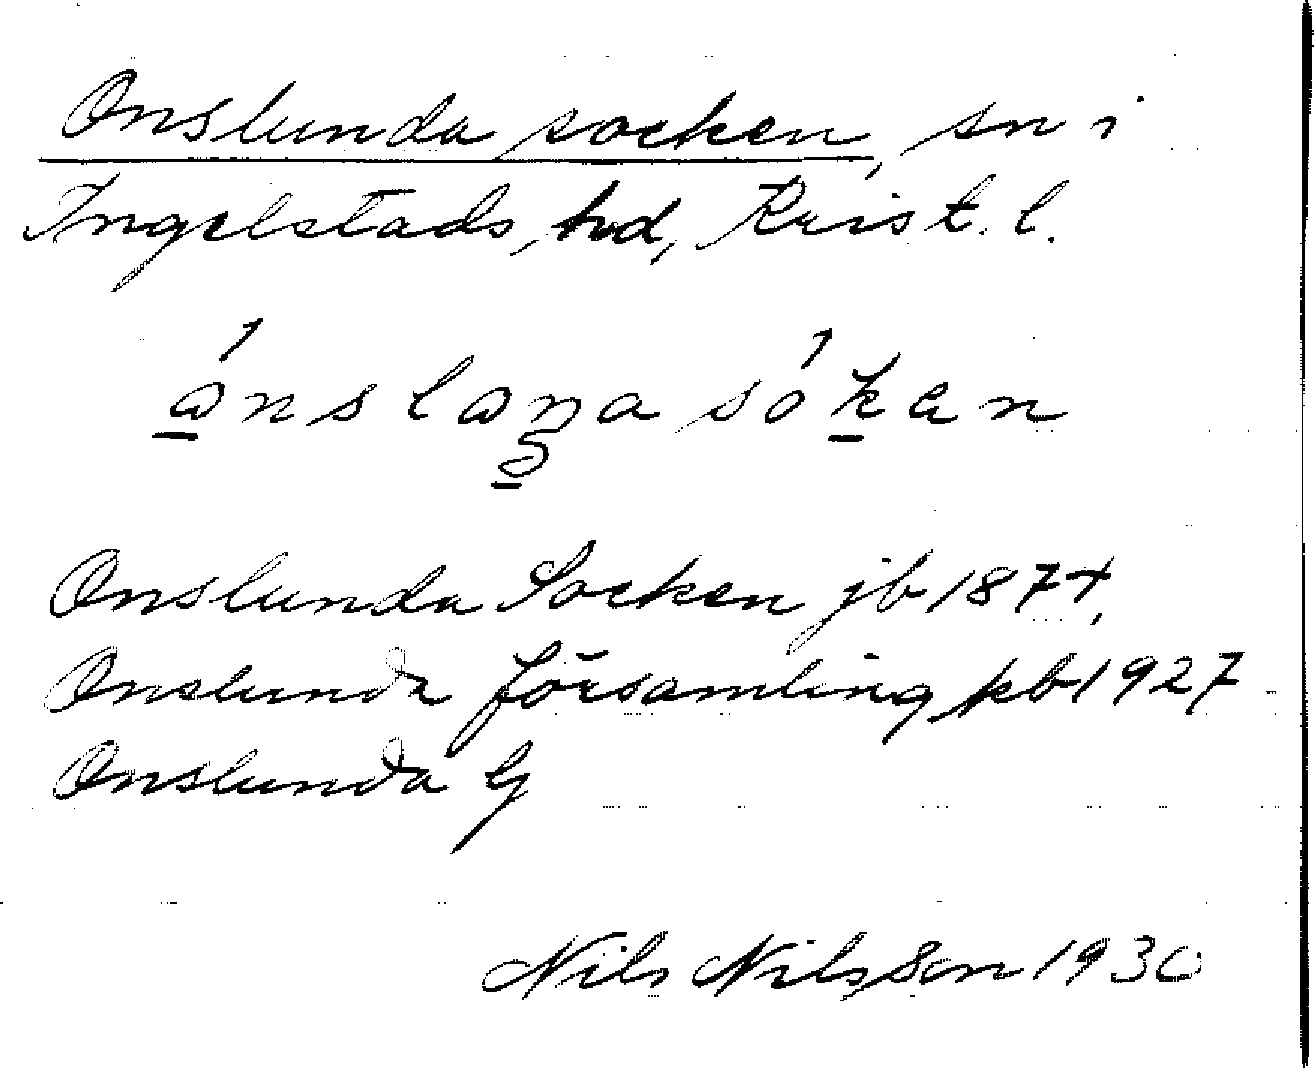 Onslunda socken, sn i
Ingelstads hd, Krist. l.
ánslaŋa sókan
Onslunda Socken jb 1874,
Onslunda församling kb 1927
Onslunda G
Nils Nilsson 1930